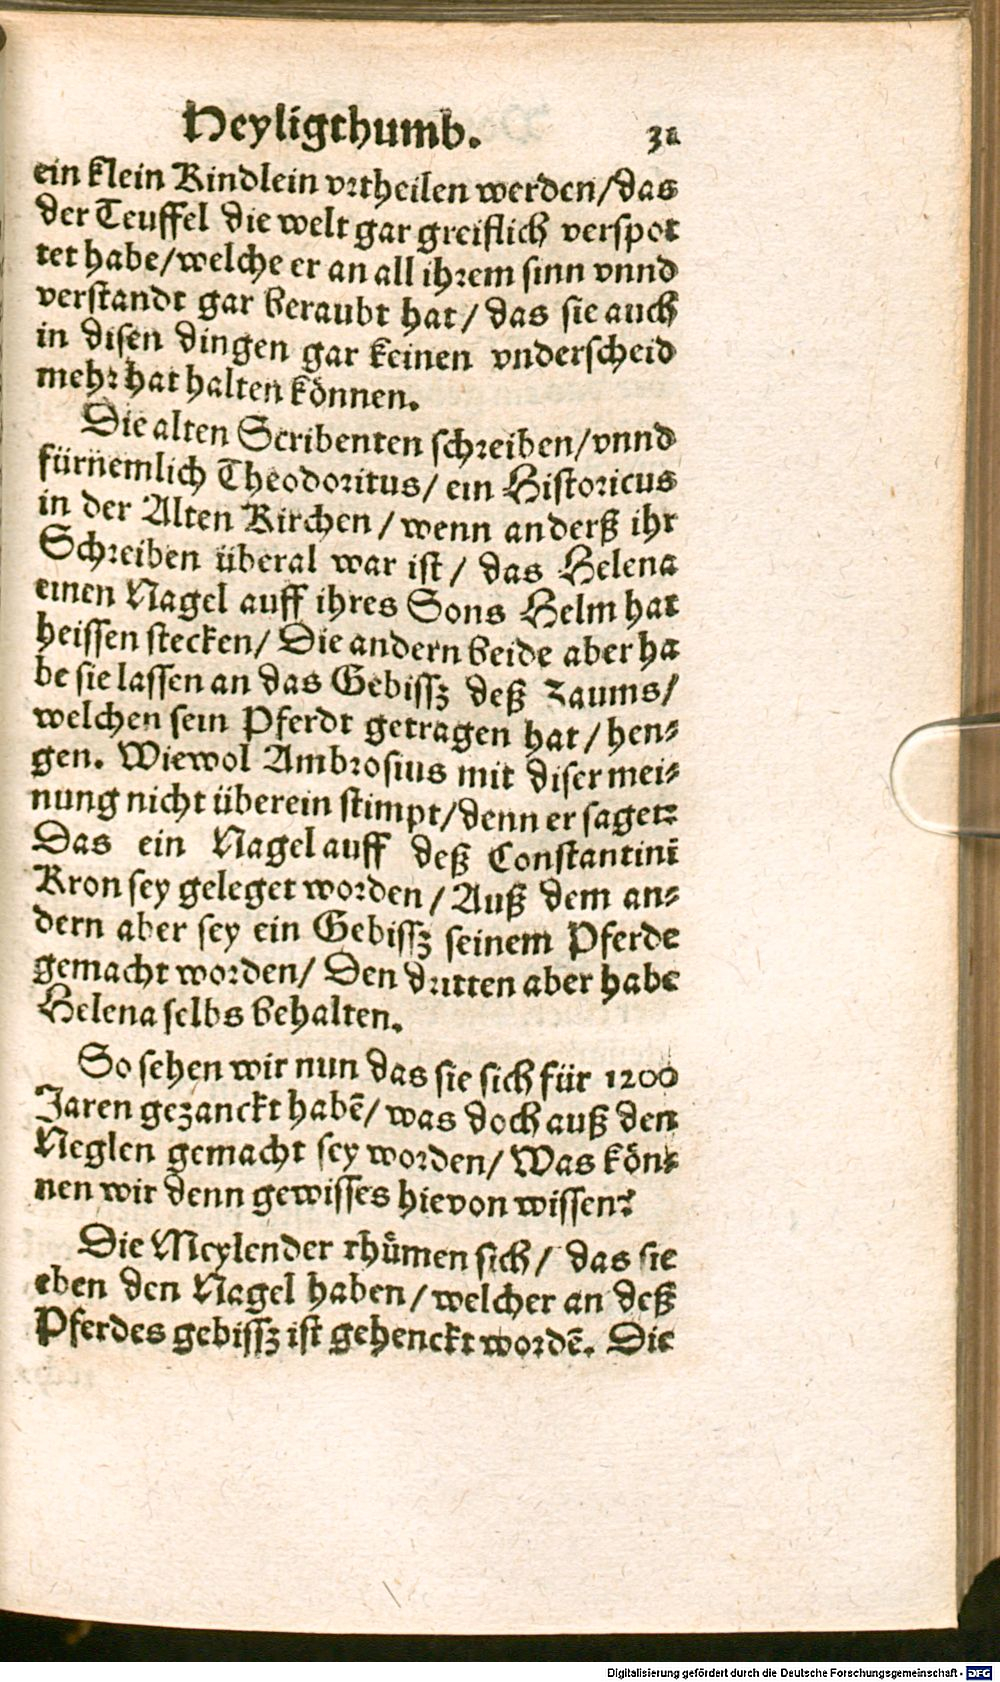 Heyligthumb. 31
ein klein Kindlein vrtheilen werden/das
der Teuffel die welt gar greiflich verspot
tet habe/welche er an all ihrem sinn vnnd
verstandt gar beraubt hat/ das sie auch
in disen dingen gar keinen vnderscheid
mehr hat halten können.
Die alten Scribenten schreiben/vnnd
fürnemlich Theodoritus/ ein Historicus
in der Alten Kirchen/ wenn anderß ihr
Schreiben überal war ist/ das Helena
einen Nagel auff ihres Sons Helm hat
heissen stecken/ Die andern beide aber ha
be sie lassen an das Gebissz deß Zaums/
welchen sein Pferdt getragen hat/ hen-
gen. Wiewol Ambrosius mit diser mei-
nung nicht überein stimpt/denn er saget:
Das ein Nagel auff deß Constantini
Kron sey geleget worden/ Auß dem an-
dern aber sey ein Gebissz seinem Pferde
gemacht worden/ Den dritten aber habe
Helena selbs behalten.
So sehen wir nun das sie sich für 1200
Jaren gezanckt habē/ was doch auß den
Neglen gemacht sey worden/ Was kön-
nen wir denn gewisses hievon wissen?
Die Meylender rhůmen sich/ das sie
eben den Nagel haben/ welcher an deß
Pferdes gebissz ist gehenckt wordē. Die
Digitalisierung gefördert durch die Deutsche Forschungsgemeinschaft - DFG